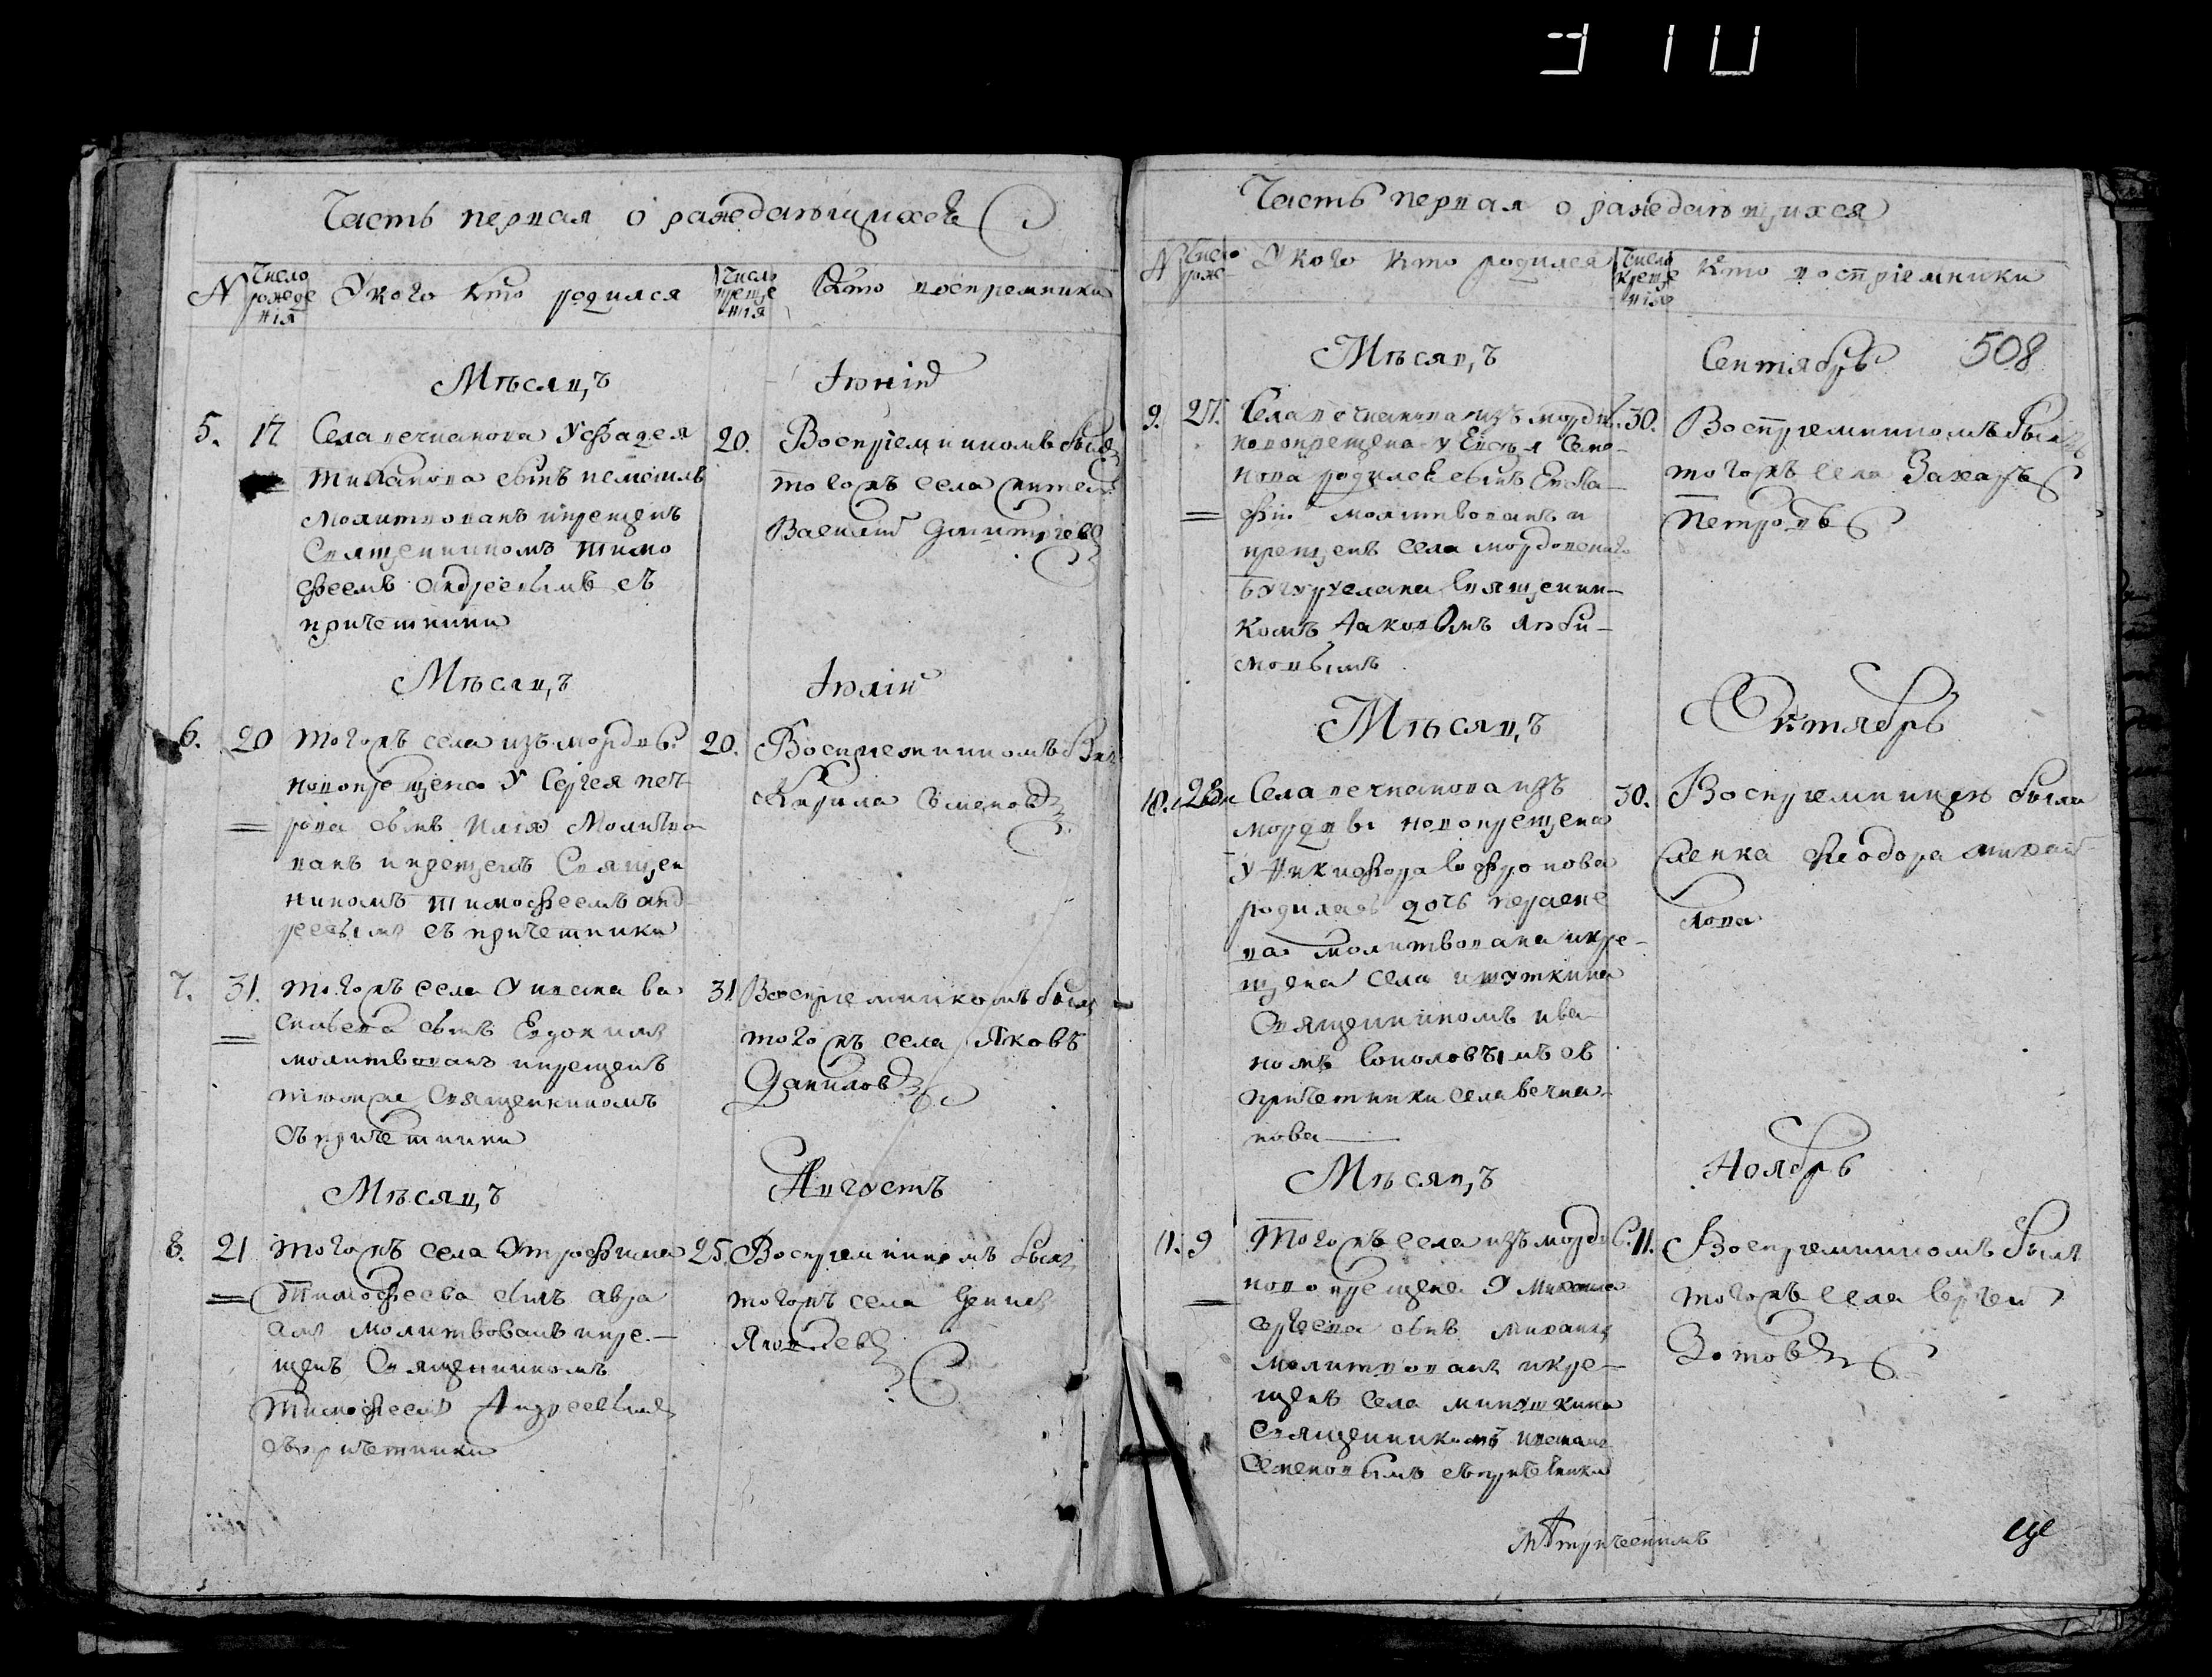 Часть первая о раждающихся
N
Число рожде нiя
У кого кто родился
Число креще нiя
Кто воспремники
Мѣсяцъ Iюнiй
5. 17 Села вечканова У Фадея
Тиханова сынъ
молитвованъ икрещенъ
Священникомъ Тимо
феемъ андреевымъ съ
причетники
20. Воспрiемникомъ былъ
тогожъ села жителъ
Василiй Дмитрiевъ
Мѣсяцъ Iюлiй
6. 20 тогожъ села изъ мордвы
новокрещена У Сергея пет
рова сынъ Илiя Молитво
ванъ икрещенъ Священ
никомъ тимофеемъ анд
реевымъ съ причетники
20. Воспрiемникомъ былъ
Кирила Семеновъ
7. 31. тогожъ села У ивана ва
сильева сынъ Евдокимъ
молитвованъ икрещенъ
темже Священникомъ
съ причетники
31 Воспрiемникомъ былъ
тогожъ села Яковъ
Даниловъ
Мѣсяцъ Августъ
8. 21 тогожъ села У трофима
Тимофеева сынъ авра
амъ молитвованъ икре-
щенъ Священникомъ
тимофеемъ Андреевымъ
съ причетники
25. Воспрiемникомъ былъ
тогожъ села Денисъ
Яковлевъ
Часть первая о раждающихся
N
Число рож-
У кого кто родился
Число креще нiя
Кто воспрiемники
508
Мѣсяцъ Сентябрь
9. 27. Села вечканова изъ мордвы
новокрещена У Семе-
нова родился сынъ Евста-
фiй молитвованъ и
крещенъ села мордовскаго
Бугуруслана священни-
комъ Iаковомъ Люби-
мовымъ
30. Воспрiемникомъ былъ
тогожъ села Захаръ
Петровъ
Мѣсяцъ Октябрь
10. 28. Села вечканова изъ
мордвы новокрещена
У Никифора Софронова
родилась дочь параске
ва молитвована икре-
щена села ишуткина
Священникомъ ива-
номъ Соколовымъ съ
причетники села вечка-
нова
30. Воспрiемницею была
Феодора михай
лова
Мѣсяцъ Ноябрь
11. 9 Тогожъ села изъ мордвы
новокрещена У Михаила
сергеева сынъ михаилъ
молитвованъ икре-
щенъ села микушкина
священникомъ иваномъ
Семеновымъ съ причетники
11. Воспрiемникомъ былъ
тогожъ села Сергей
Зотовъ